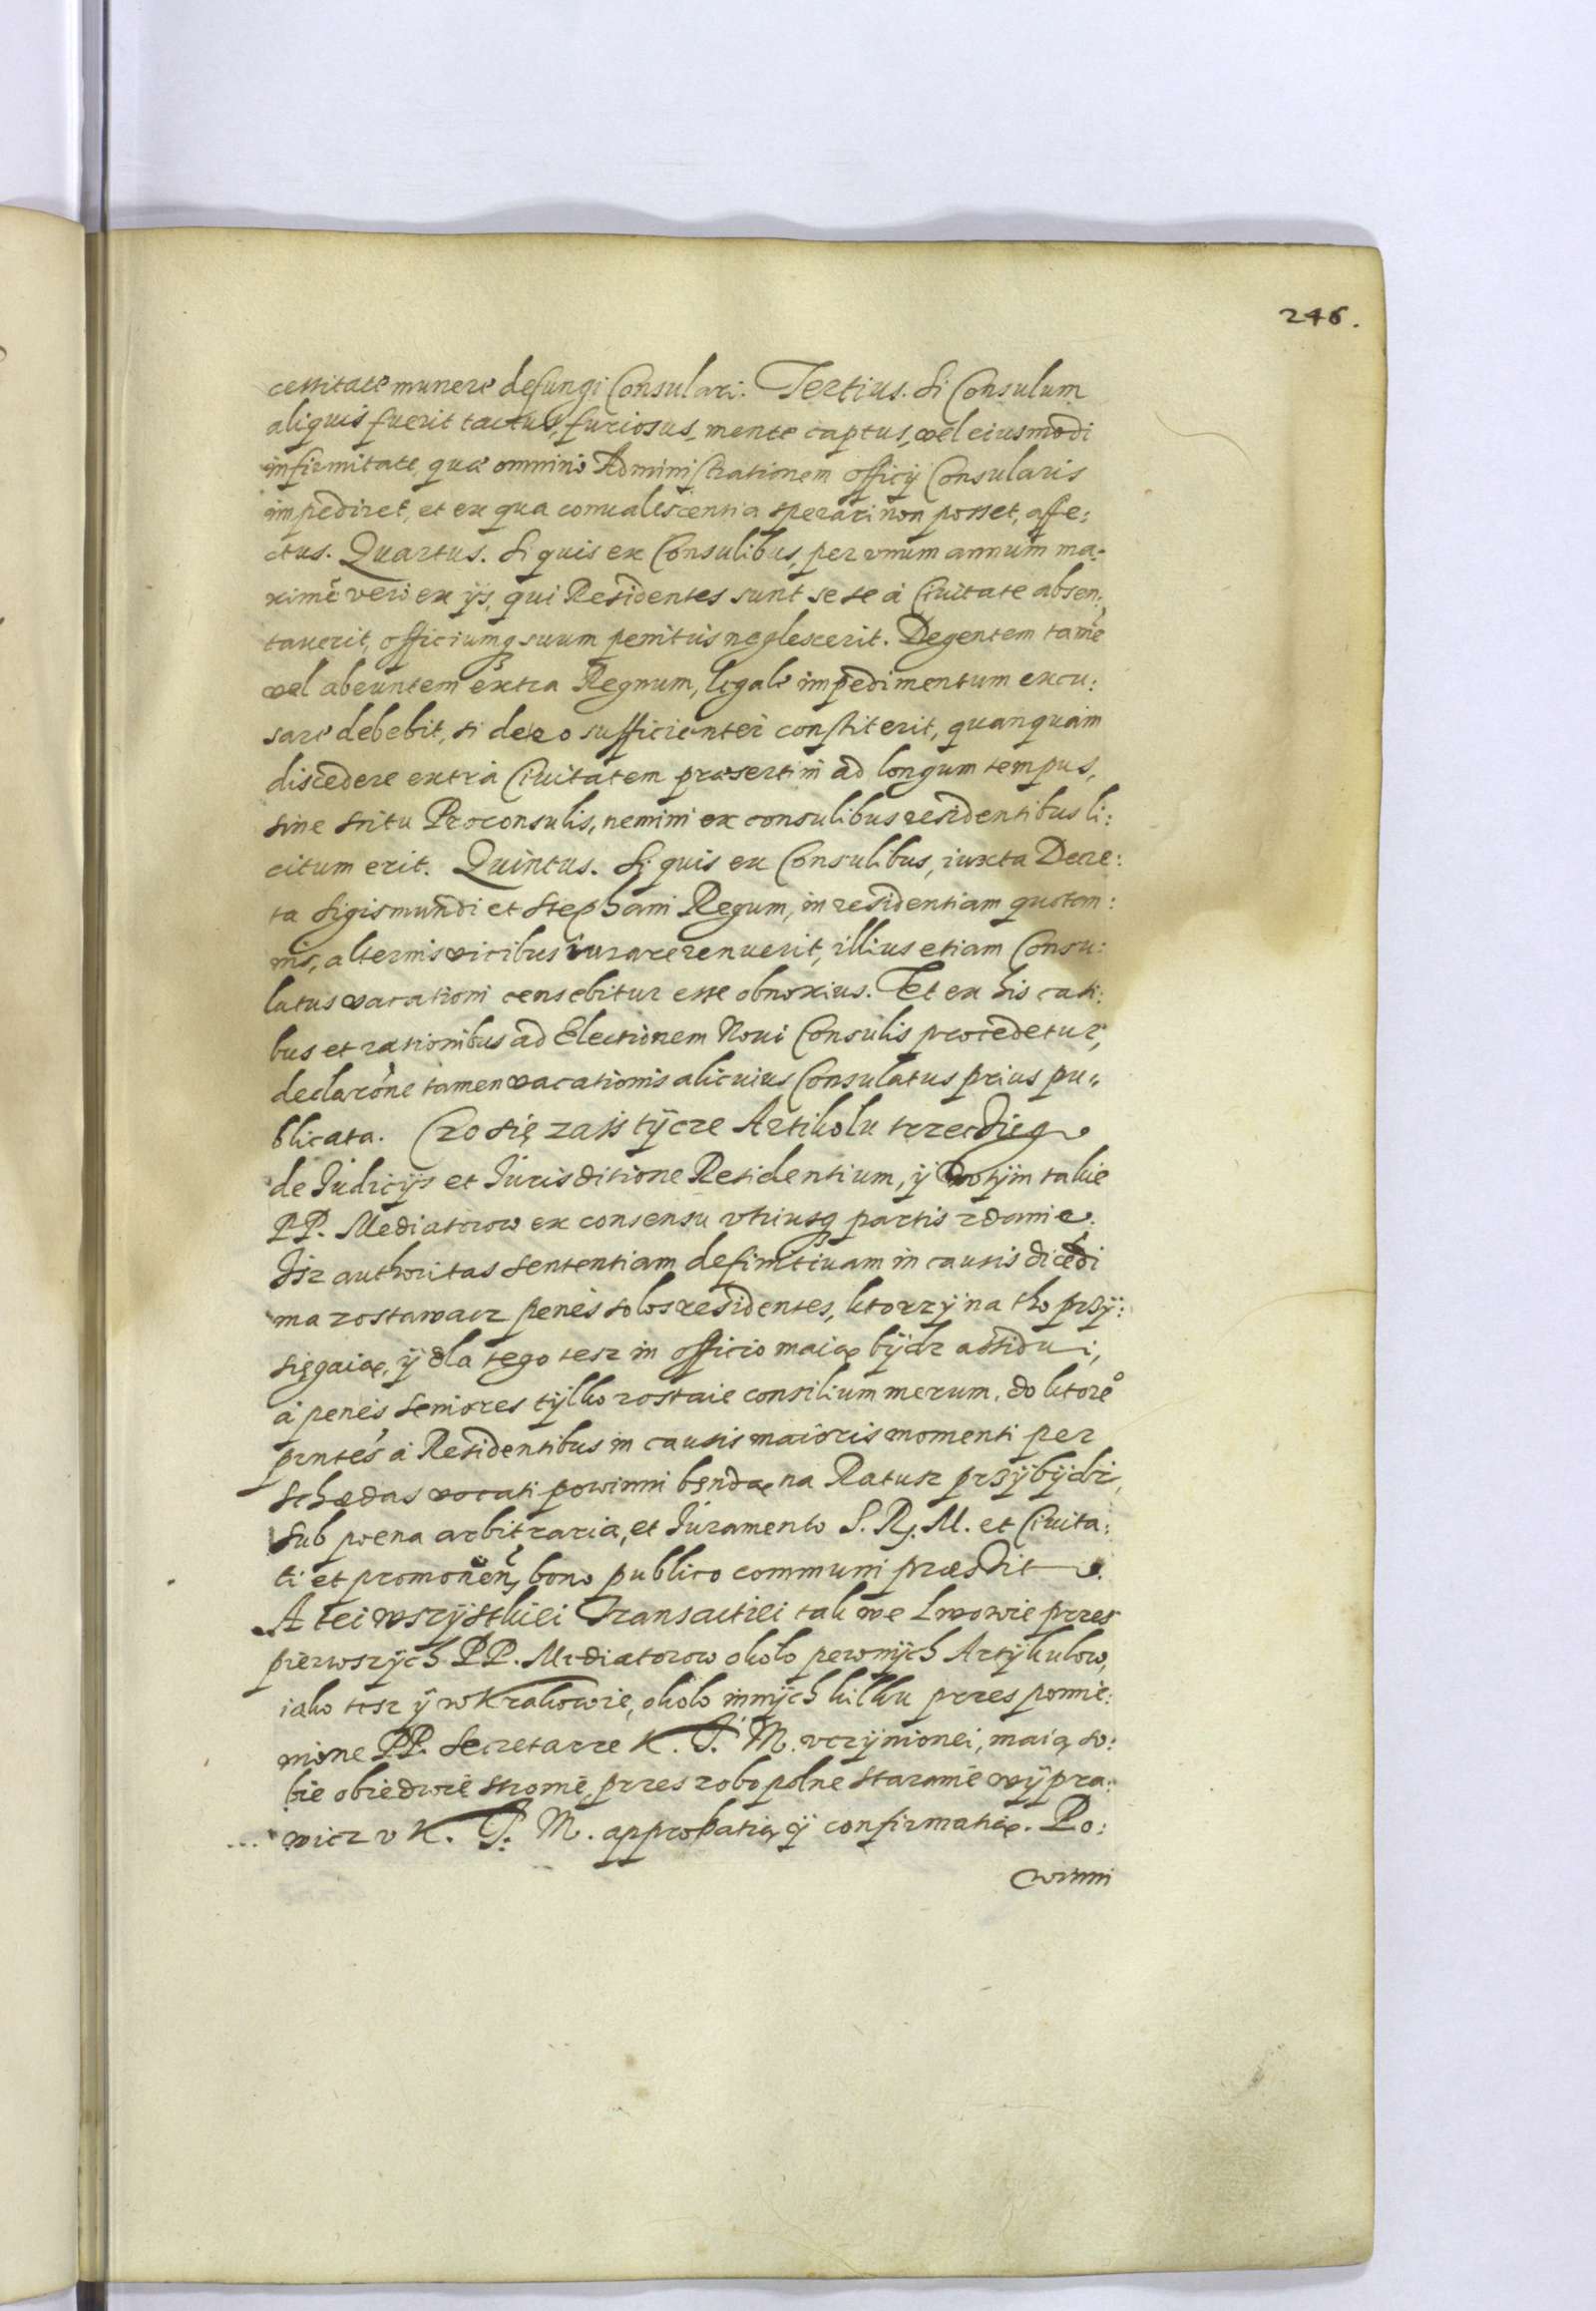 246.
cessitate munere defungi Consulari. Tertius. Si Consulum
aliquis fuerit tactus, furiosus, mente captus, vel eiusmodi
infirmitate, quæ omnino Administrationem officij Consularis
impediret, et ex qua conualescentia sperari non posset, affe:
ctus. Quartus. Si quis ex Consulibus, per vnum annum ma-
ximè verò ex ijs, qui Residentes sunt se se à Ciuitate absen:
tauerit, officiumq suum penitùs neglexerit. Degentem tamẽ
vel abeuntem extra Regnum, legale impedimentum excu:
sare debebit, si de eo sufficienter constiterit, quanquam
discedere extrà Ciuitatem præsertim ad longum tempus,
sine scitu Proconsulis, nemini ex consulibus residentibus li:
citum erit. Quintus. Si quis ex Consulibus, iuxta Decre:
ta Sigismundi et Stephani Regum, in residentiam quotan:
nis, alternis vicibus iurare renuerit, illius etiam Consu:
latus vacationi censebitur esse obnoxius. Et ex his casi:
bus et rationibus ad Electionem Noui Consulis procedetur,
declarõne tamen vacationis alicuius Consulatus prius pu-
blicata. Czo się zass tÿcze Artikolu trzecdieg
de Iudicijs et Iurisditione Residentium, ÿ w otÿm takie
PP. Mediatorow ex consensu vtriusq partis zdanie.
Isz authoritas sententiam definitiuam in causis dicẽdi
ma zostawacz penès solos residentes, ktorzÿ na tho przÿ:
sięgaią, ÿ dla tego tesz in officio maią bÿdz assidui,
à penès Seniores tÿlko zostaie consilium merum, do ktoreᵒ
prntes à Residentibus in causis maioris momenti per
Schædas vocati powinni bendą na Ratusz przÿbÿdz,
sub poena arbitraria, et Iuramento S. R. M. et Ciuita:
ti et promonen, bono publico communi præstito.
A tei wszÿstkiei Transactiei tak we Lwowie przes
pierwszÿch PP. Mediatorow około pewnÿch Artÿkulow,
iako tesz ÿ w Krakowie, około innÿch kilku przes pomie:
nione PP. Secretarze K. J. M. vczÿnionei, maią so:
bie obiedwie stronie, przes zobopolne staranie wÿpra:
wicz v K. J. M. approbatią ÿ confirmatią. Po:
winni